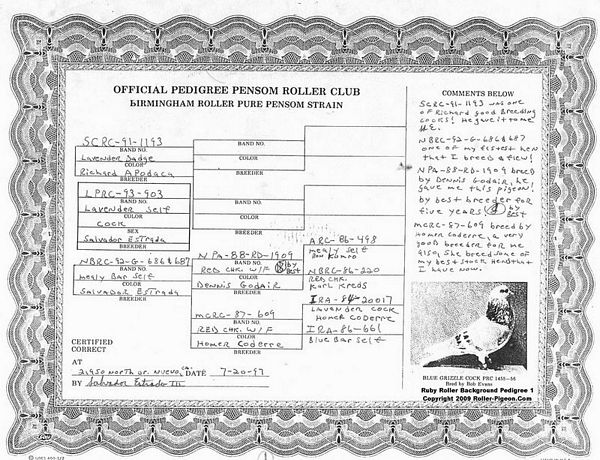 OFFICIAL PEDIGREE PENSOM ROLLER CLUB
BIRMINGHAM ROLLER PURE PENSOM STRAIN
SCRC-91-1193
BAND NO.
Lavender Badge
COLOR
Richard Apodaca
BREEDER
LPRC-93-903
BAND NO.
Lavender Self
COLOR
COCK
SEX
Salvador Estrada
BREEDER
NBRC-92-G-686&687
BAND NO.
Mealy Bar Self
COLOR
Salvador Estrada
BREEDER
BAND NO.
COLOR
BREEDER
BAND NO.
COLOR
BREEDER
NPA-88-RD-1909
BAND NO.
RED CHK. W/F by Best
COLOR
Dennis Godair
BREEDER
MCRC-87-609
BAND NO.
RED CHK. W/F
COLOR
Homer Coderre
BREEDER
ARC-86-498
Mealy Self
NBRC-86-220
RED CHK.
Karl
IRA-84-20017
Lavander Cock
Homer Coderre
IRA-86-661
Blue Bar Self
CERTIFIED
CORRECT
AT
21950 North
DATE 7-20-97
BY Salvador Estrada III
COMMENTS BELOW
SCRC-91-1193 was one
of Richard good Breeding
cocks! He gave it to me
NBRC-92-G-686&687
one of my Best hen
that I breed & flew!
NPA-88-RD-1909 breed
by Dennis Godair, he
gave me this pigeon!
by best breeder for
five years! by Best
MCRC-87-609 breed by
Homer Coderre, a very
good breeder for me
also, she breed some of
my best stock hens that
I have now.
BLUE GRIZZLE COCK PRC 1435-56
Bred by Bob Evans
Ruby Roller Background Pedigree 1
Copyright 2009 Roller-Pigeon.Com